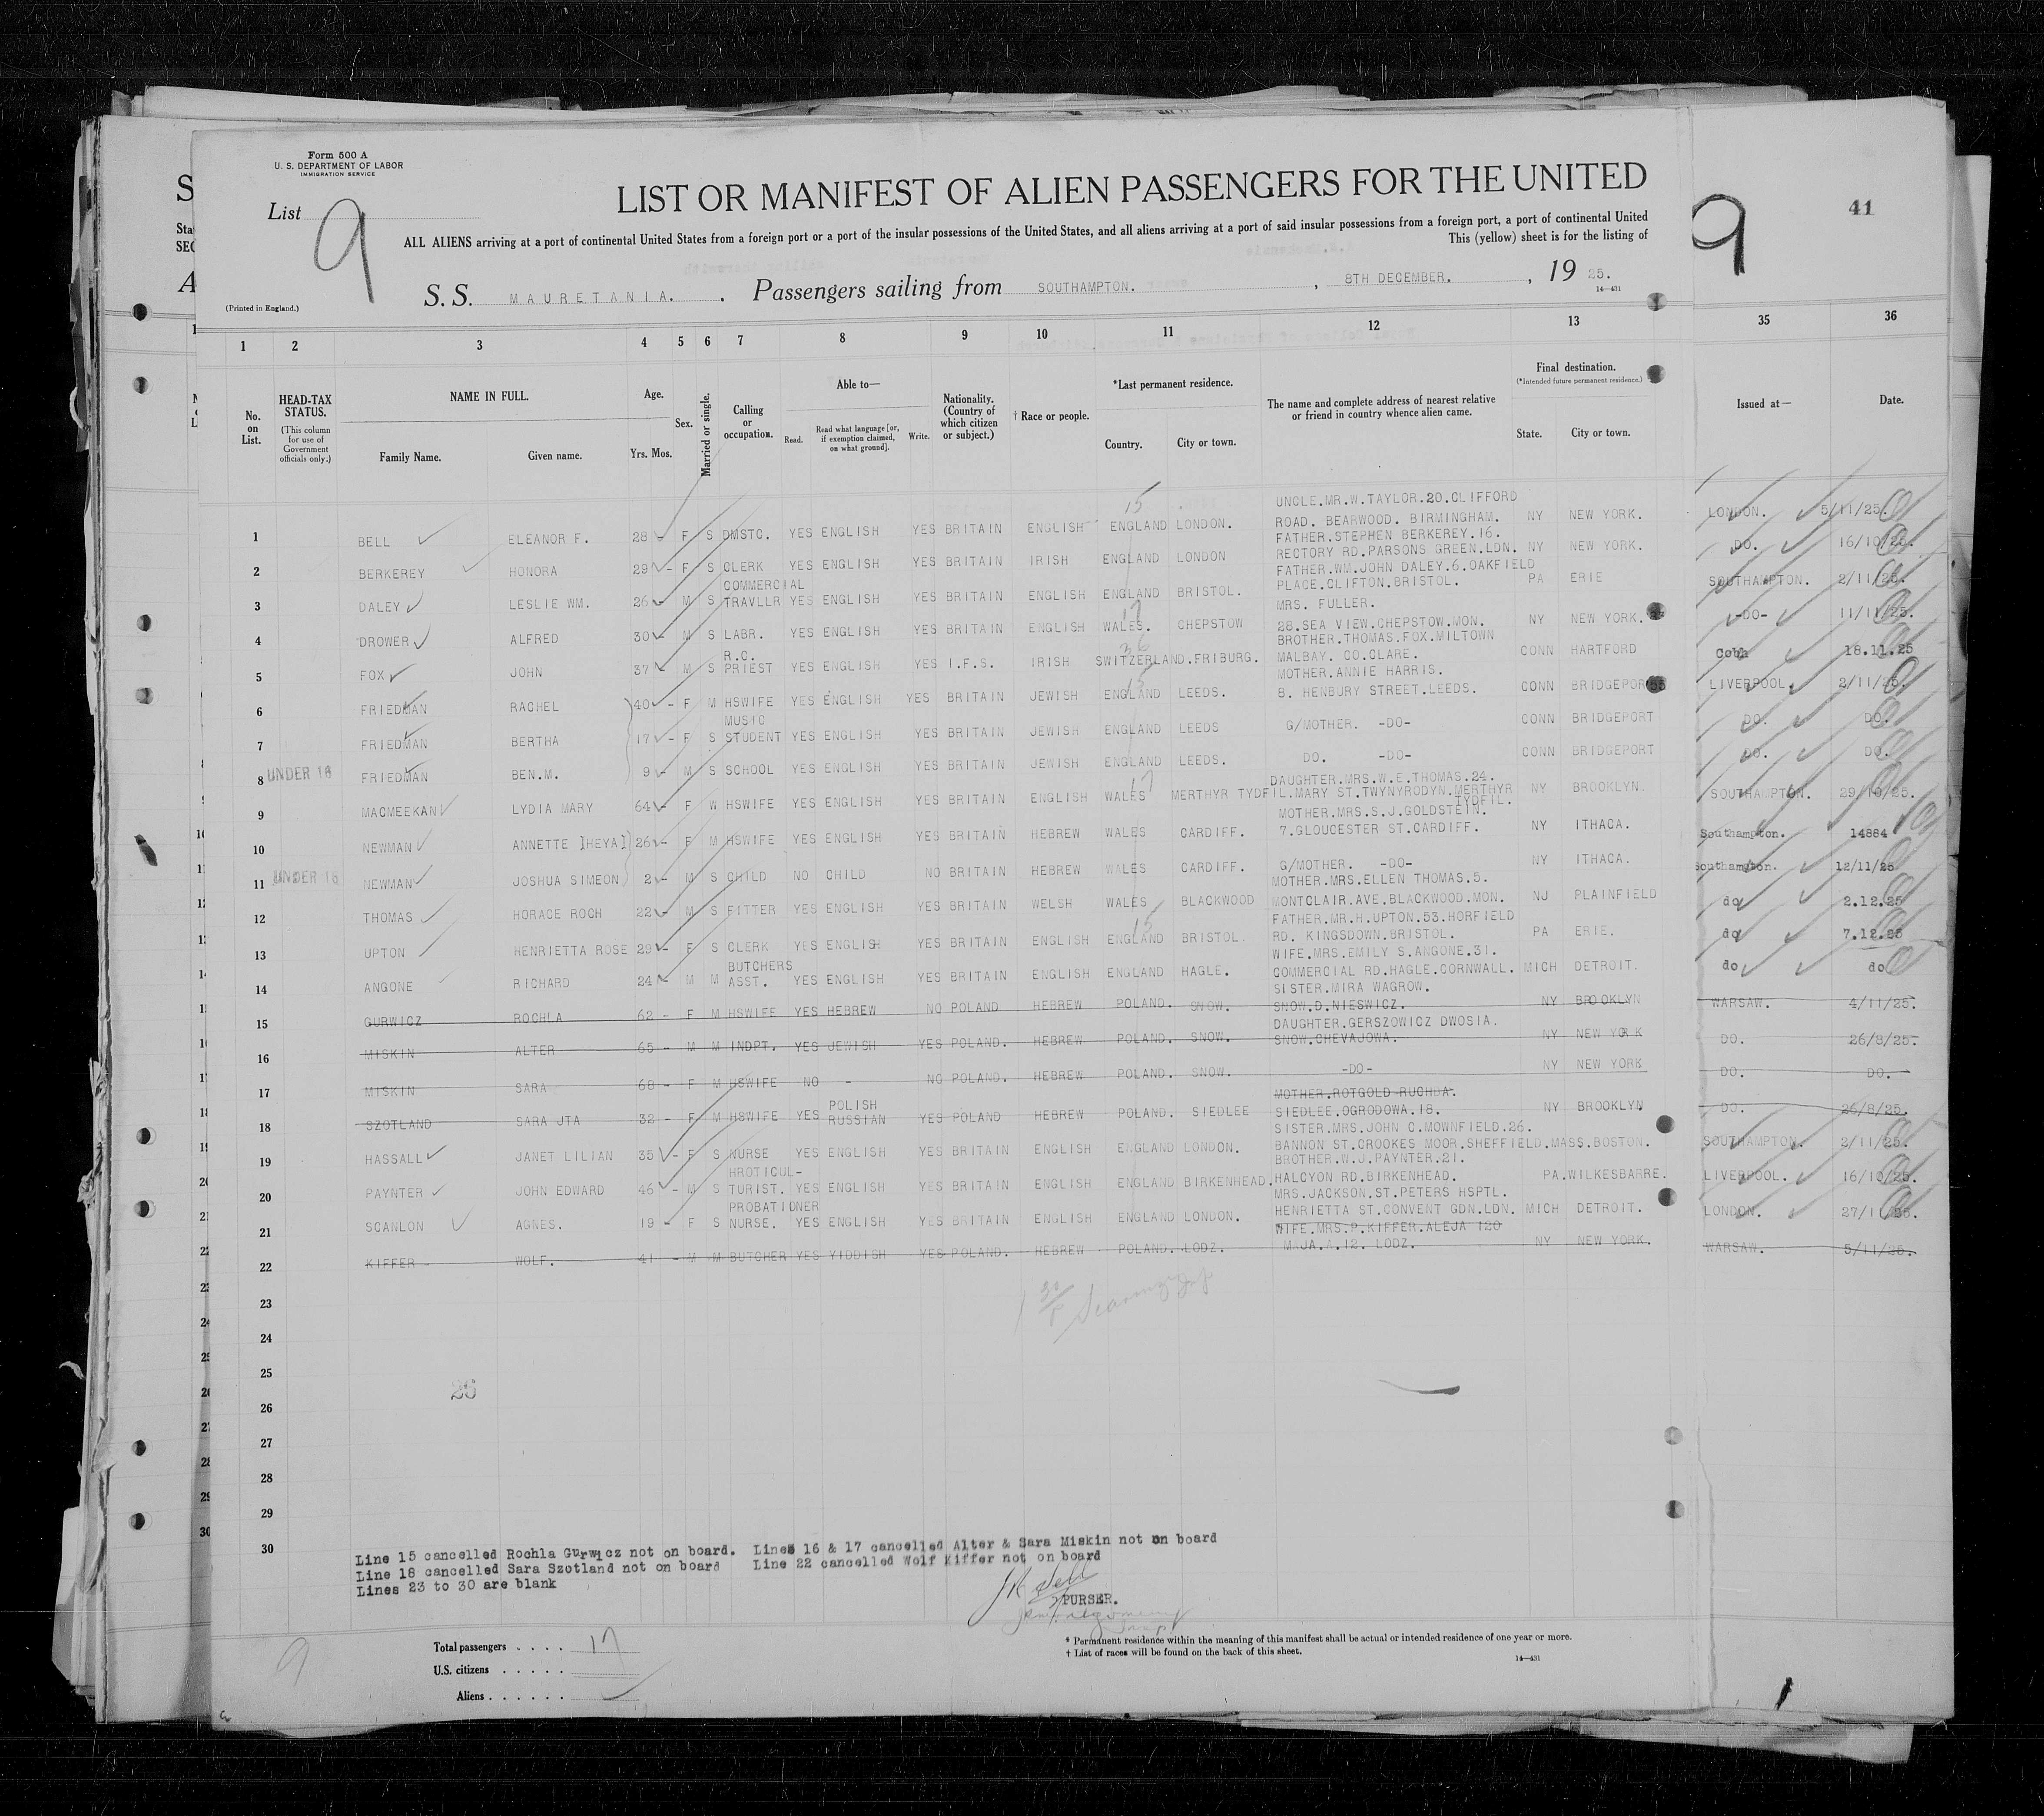 Form 500 A
U. S. DEPARTMENT OF LABOR
IMMIGRATION SERVICE
List 9
LIST OR MANIFEST OF ALIEN PASSENGERS FOR THE UNITED
ALL ALIENS arriving at a port of continental United States from a foreign port or a port of the insular possessions of the United States, and all aliens arriving at a port of said insular possessions from a foreign port, a port of continental United
This (yellow) sheet is for the listing of
9
41
(Printed in England.)
S. S. MAURETANIA. Passengers sailing from SOUTHAMPTON. , 8TH DECEMBER. , 19 25.
14—431
1 2 3 4 5 6 7 8 9 10 11 12 13 35 36
No. on List.
HEAD-TAX STATUS.
(This column for use of Government officials only.)
NAME IN FULL.
Family Name. Given name.
Age.
Yrs. Mos.
Sex.
Married or single.
Calling or occupation.
Able to—
Read. Read what language [or, if exemption claimed, on what ground]. Write.
Nationality. (Country of which citizen or subject.)
† Race or people.
*Last permanent residence.
Country. City or town.
The name and complete address of nearest relative or friend in country whence alien came.
Final destination.
(*Intended future permanent residence.)
State. City or town.
Issued at— Date.
1 BELL ELEANOR F. 28 - F S DMSTC. YES ENGLISH YES BRITAIN ENGLISH ENGLAND LONDON. UNCLE.MR.W.TAYLOR.20.CLIFFORD ROAD. BEARWOOD. BIRMINGHAM. NY NEW YORK. LONDON. 5/11/25.
2 BERKEREY HONORA 29 - F S CLERK YES ENGLISH YES BRITAIN IRISH ENGLAND LONDON FATHER.STEPHEN BERKEREY.16. RECTORY RD.PARSONS GREEN.LDN. NY NEW YORK. DO. 16/10/25.
3 DALEY LESLIE WM. 26 - M S COMMERCIAL TRAVLLR YES ENGLISH YES BRITAIN ENGLISH ENGLAND BRISTOL. FATHER.WM.JOHN DALEY.6.OAKFIELD PLACE.CLIFTON.BRISTOL. PA ERIE SOUTHAMPTON. 2/11/25.
4 DROWER ALFRED 30 - M S LABR. YES ENGLISH YES BRITAIN ENGLISH WALES. CHEPSTOW MRS. FULLER. 28.SEA VIEW.CHEPSTOW.MON. NY NEW YORK. -DO- 11/11/25.
5 FOX JOHN 37 - M S R.C. PRIEST YES ENGLISH YES I.F.S. IRISH SWITZERLAND.FRIBURG. BROTHER.THOMAS.FOX.MILTOWN MALBAY. CO.CLARE. CONN HARTFORD Cobh 18.11.25
6 FRIEDMAN RACHEL 40 - F M HSWIFE YES ENGLISH YES BRITAIN JEWISH ENGLAND LEEDS. MOTHER.ANNIE HARRIS. 8. HENBURY STREET.LEEDS. CONN BRIDGEPORT LIVERPOOL. 2/11/25.
7 FRIEDMAN BERTHA 17 - F S MUSIC STUDENT YES ENGLISH YES BRITAIN JEWISH ENGLAND LEEDS G/MOTHER. -DO- CONN BRIDGEPORT DO. DO.
8 UNDER 16 FRIEDMAN BEN.M. 9 - M S SCHOOL YES ENGLISH YES BRITAIN JEWISH ENGLAND LEEDS. DO. -DO- CONN BRIDGEPORT DO. DO.
9 MACMEEKAN LYDIA MARY 64 - F W HSWIFE YES ENGLISH YES BRITAIN ENGLISH WALES MERTHYR TYDFIL. DAUGHTER.MRS.W.E.THOMAS.24. MARY ST.TWYNYRODYN.MERTHYR TYDFIL. NY BROOKLYN. SOUTHAMPTON. 29/10/25.
10 NEWMAN ANNETTE ]HEYA] 26 - F M HSWIFE YES ENGLISH YES BRITAIN HEBREW WALES CARDIFF. MOTHER.MRS.S.J.GOLDSTEIN. 7.GLOUCESTER ST.CARDIFF. NY ITHACA. Southampton. 14884
11 UNDER 16 NEWMAN JOSHUA SIMEON 2 - M S CHILD NO CHILD NO BRITAIN HEBREW WALES CARDIFF. G/MOTHER. -DO- NY ITHACA. Southampton. 12/11/25
12 THOMAS HORACE ROCH 22 - M S FITTER YES ENGLISH YES BRITAIN WELSH WALES BLACKWOOD MOTHER.MRS.ELLEN THOMAS.5. MONTCLAIR.AVE.BLACKWOOD.MON. NJ PLAINFIELD do 2.12.25
13 UPTON HENRIETTA ROSE 29 - F S CLERK YES ENGLISH YES BRITAIN ENGLISH ENGLAND BRISTOL. FATHER.MR.H.UPTON.53.HORFIELD RD. KINGSDOWN.BRISTOL. PA ERIE. do 7.12.25
14 ANGONE RICHARD 24 - M M BUTCHERS ASST. YES ENGLISH YES BRITAIN ENGLISH ENGLAND HAGLE. WIFE.MRS.EMILY S.ANGONE.31. COMMERCIAL RD.HAGLE.CORNWALL. MICH DETROIT. do do
15 GURWICZ ROCHLA 62 - F M HSWIFE YES HEBREW NO POLAND HEBREW POLAND. SNOW. SISTER.MIRA WAGROW. SNOW.D.NIESWICZ. NY BROOKLYN WARSAW. 4/11/25.
16 MISKIN ALTER 65 - M M INDPT. YES JEWISH YES POLAND. HEBREW POLAND. SNOW. DAUGHTER.GERSZOWICZ DWOSIA. SNOW.CHEVAJOWA. NY NEW YORK DO. 26/8/25.
17 MISKIN SARA 68 - F M HSWIFE NO - NO POLAND. HEBREW POLAND. SNOW. -DO- NY NEW YORK DO. DO.
18 SZOTLAND SARA JTA 32 - F M HSWIFE YES POLISH RUSSIAN YES POLAND HEBREW POLAND. SIEDLEE MOTHER.ROTGOLD RUCHDA. SIEDLEE.OGRODOWA.18. NY BROOKLYN DO. 26/8/25.
19 HASSALL JANET LILIAN 35 - F S NURSE YES ENGLISH YES BRITAIN ENGLISH ENGLAND LONDON. SISTER.MRS.JOHN C.MOWNFIELD.26. BANNON ST.CROOKES MOOR.SHEFFIELD. MASS. BOSTON. SOUTHAMPTON. 2/11/25.
20 PAYNTER JOHN EDWARD 46 - M S HROTICUL-TURIST. YES ENGLISH YES BRITAIN ENGLISH ENGLAND BIRKENHEAD. BROTHER.W.J.PAYNTER.21. HALCYON RD.BIRKENHEAD. PA. WILKESBARRE. LIVERPOOL. 16/10/25.
21 SCANLON AGNES. 19 - F S PROBATIONER NURSE. YES ENGLISH YES BRITAIN ENGLISH ENGLAND LONDON. MRS.JACKSON.ST.PETERS HSPTL. HENRIETTA ST.CONVENT GDN.LDN. MICH DETROIT. LONDON. 27/11/25.
22 KIFFER WOLF. 41 - M M BUTCHER YES YIDDISH YES POLAND. HEBREW POLAND. LODZ. WIFE.MRS.P.KIFFER.ALEJA 120 MAJA.A.12. LODZ. NY NEW YORK. WARSAW. 5/11/25.
23
24
25
26
26
27
28
29
30
Line 15 cancelled Rochla Gurwicz not on board. Lines 16 & 17 cancelled Alter & Sara Miskin not on board
Line 18 cancelled Sara Szotland not on board Line 22 cancelled Wolf Kiffer not on board
Lines 23 to 30 are blank
PURSER.
9
Total passengers . . . . 17
U.S. citizens . . . . .
Aliens . . . . . .
* Permanent residence within the meaning of this manifest shall be actual or intended residence of one year or more.
† List of races will be found on the back of this sheet.
14—431